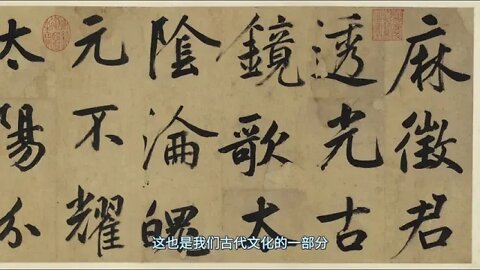 麻徵君
透光古
鏡歌太
陰淪魄
元不耀
太陽分
这也是我们古代文化的一部分